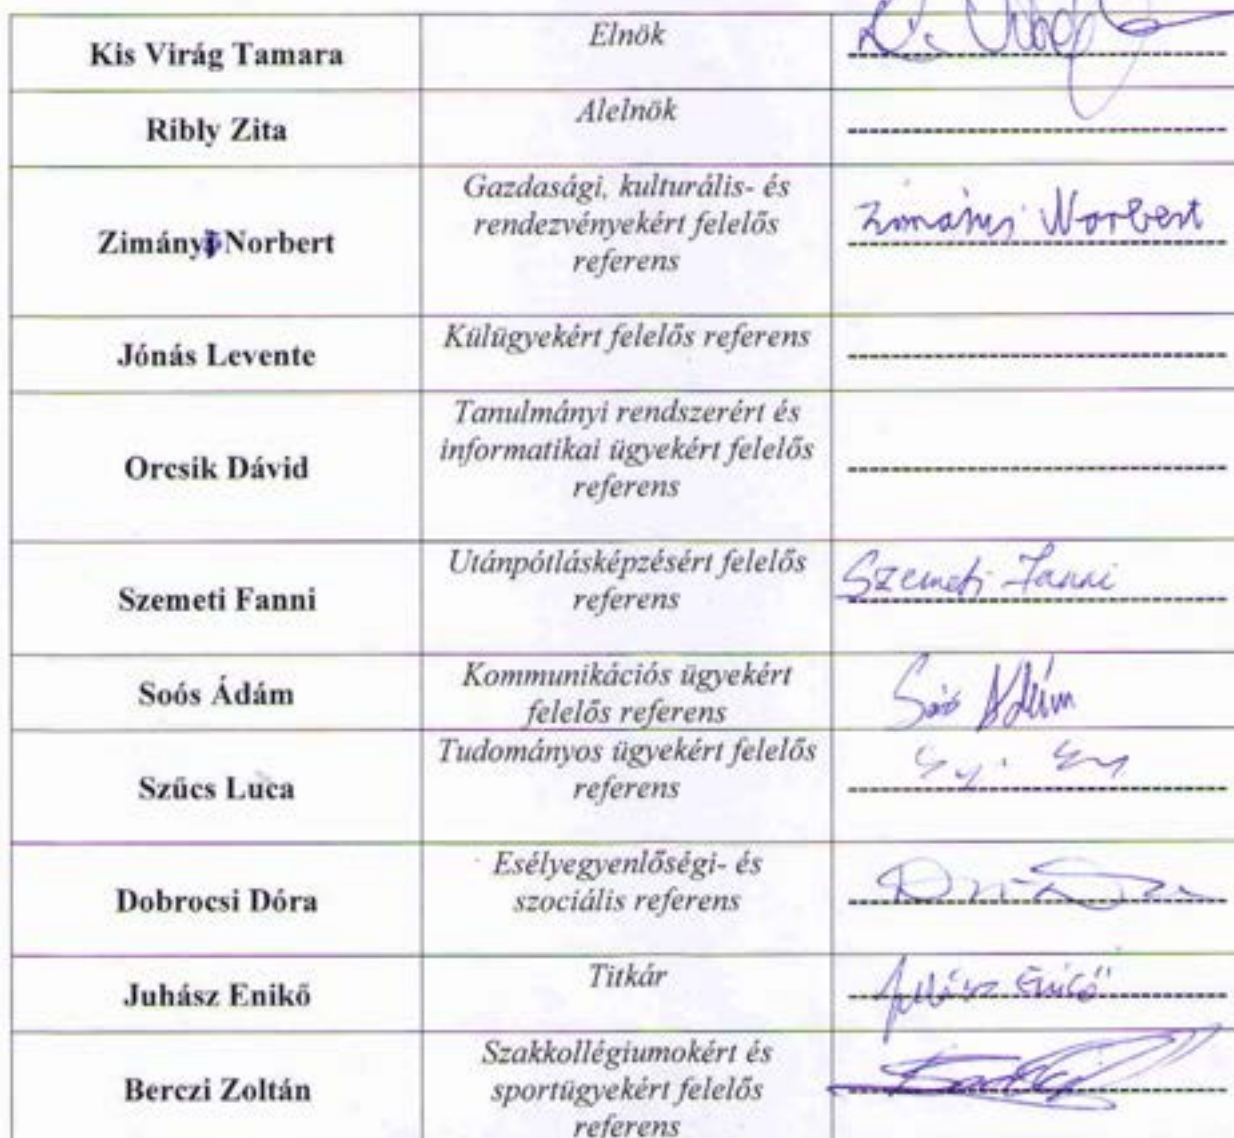 Kis Virág Tamara
Elnök
Ribly Zita
Alelnök
Gazdasági, kulturális- és
rendezvényekért felelős
referens
Zimányi Norbert
Zimányi Norbert
Jónás Levente
Külügyekért felelős referens
Tanulmányi rendszerért és
informatikai ügyekért felelős
referens
Orcsik Dávid
Utánpótlásképzésért felelős
referens
Szemeti Fanni
Szemeti Fanni
Soós Ádám
Kommunikációs ügyekért
felelős referens
Soós Ádám
Szűcs Luca
Tudományos ügyekért felelős
referens
Dobrocsi Dóra
Esélyegyenlőségi- és
szociális referens
Juhász Enikő
Titkár
Juhász Enikő
Berczi Zoltán
Szakkollégiumokért és
sportügyekért felelős
referens